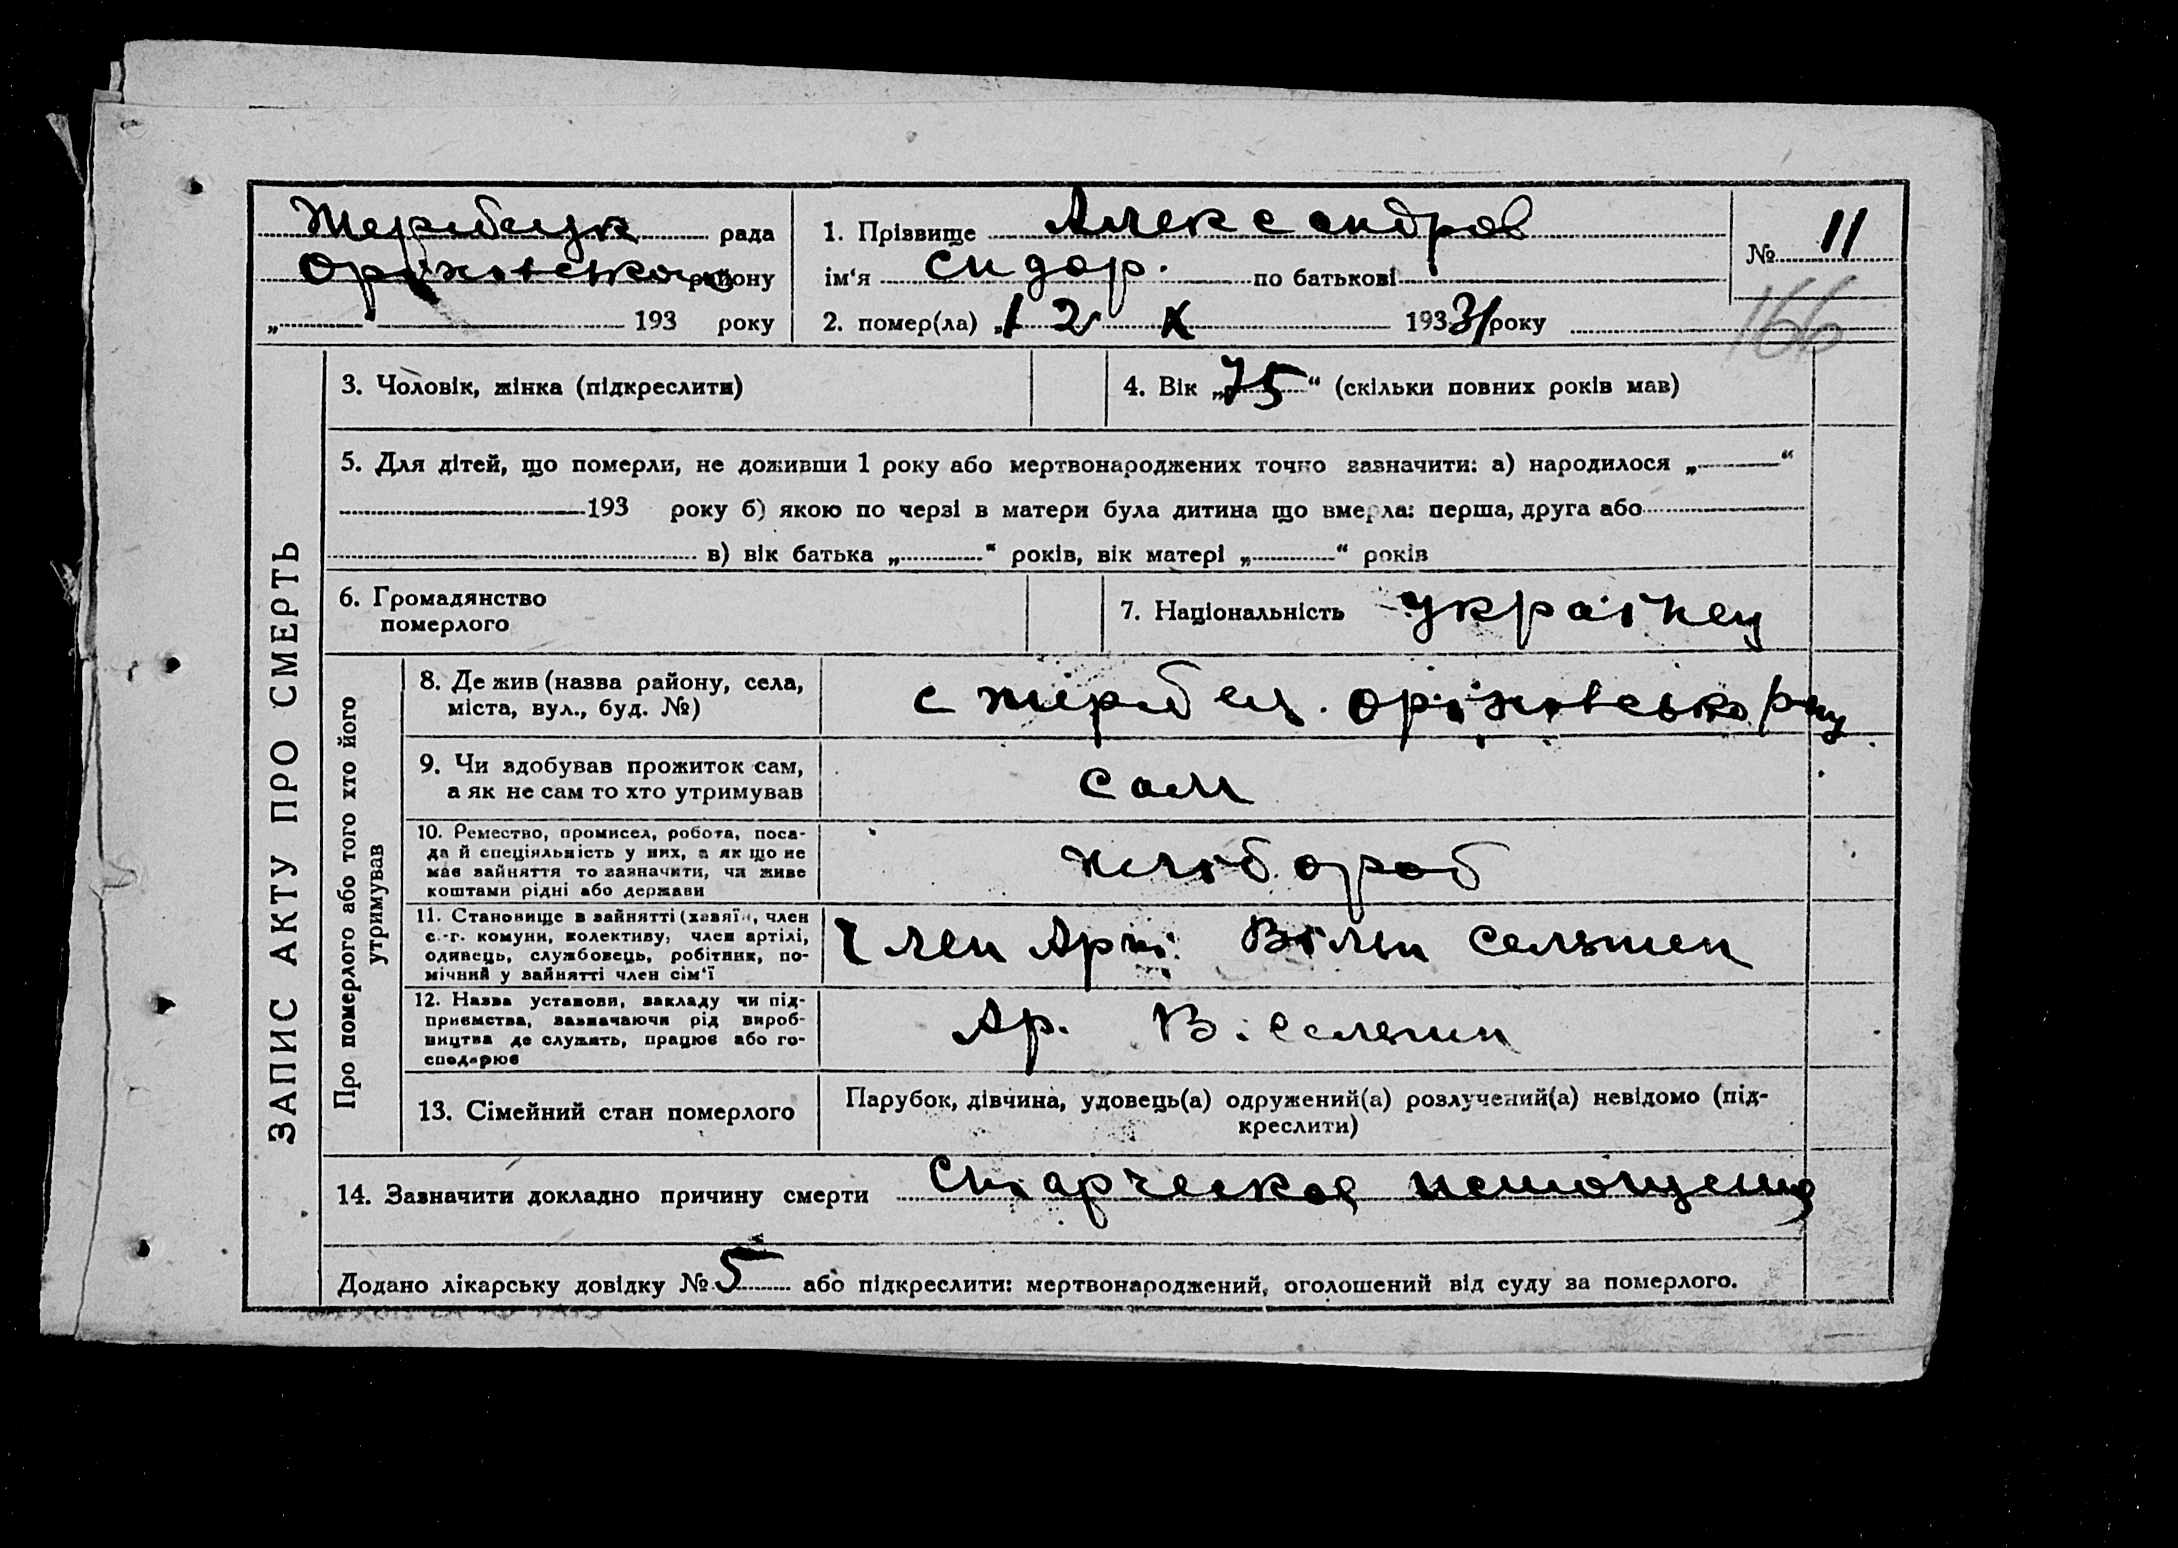 Жеребецк рада
Оріхівського району
„ “ 193 року
1. Прізвище Александров
ім‘я Сидор. по батькові
2. помер(ла) „12 X 1933 року
№ 11
166
ЗАПИС АКТУ ПРО СМЕРТЬ
3. Чоловік, жінка (підкреслити)
4. Вік „75“ (скільки повних років мав)
5. Для дітей, що померли, не доживши 1 року або мертвонароджених точно зазначити: а) народилося „ “
193 року б) якою по черзі в матери була дитина що вмерла: перша, друга або
в) вік батька „ “ років, вік матері „ “ років
6. Громадянство
померлого
7. Національність Українец
Про померлого або того хто його
утримував
8. Де жив (назва району, села,
міста, вул., буд. №)
с Жеребец. Оріхівсько р-ну
9. Чи здобував прожиток сам,
а як не сам то хто утримував
сам
10. Ремество, промисел, робота, поса-
да й спеціяльність у них, а як що не
має зайняття то зазначити, чи живе
коштами рідні або держави
хлібороб
11. Становище в зайнятті (хазяїн, член
с.-г. комуни, колективу, член артілі,
одинець, службовець, робітник, по-
мічний у зайнятті член сім‘ї
Член Арті Вільн Селянин
12. Назва установи, закладу чи під-
приємства, зазначаючи рід вироб-
ництва де служить, працює або го-
сподарює
Ар. В. Селянин
13. Сімейний стан померлого
Парубок, дівчина, удовець(а) одружений(а) розлучений(а) невідомо (під-
креслити)
14. Зазначити докладно причину смерти Старческое
Додано лікарську довідку № 5 або підкреслити: мертвонароджений, оголошений від суду за померлого.